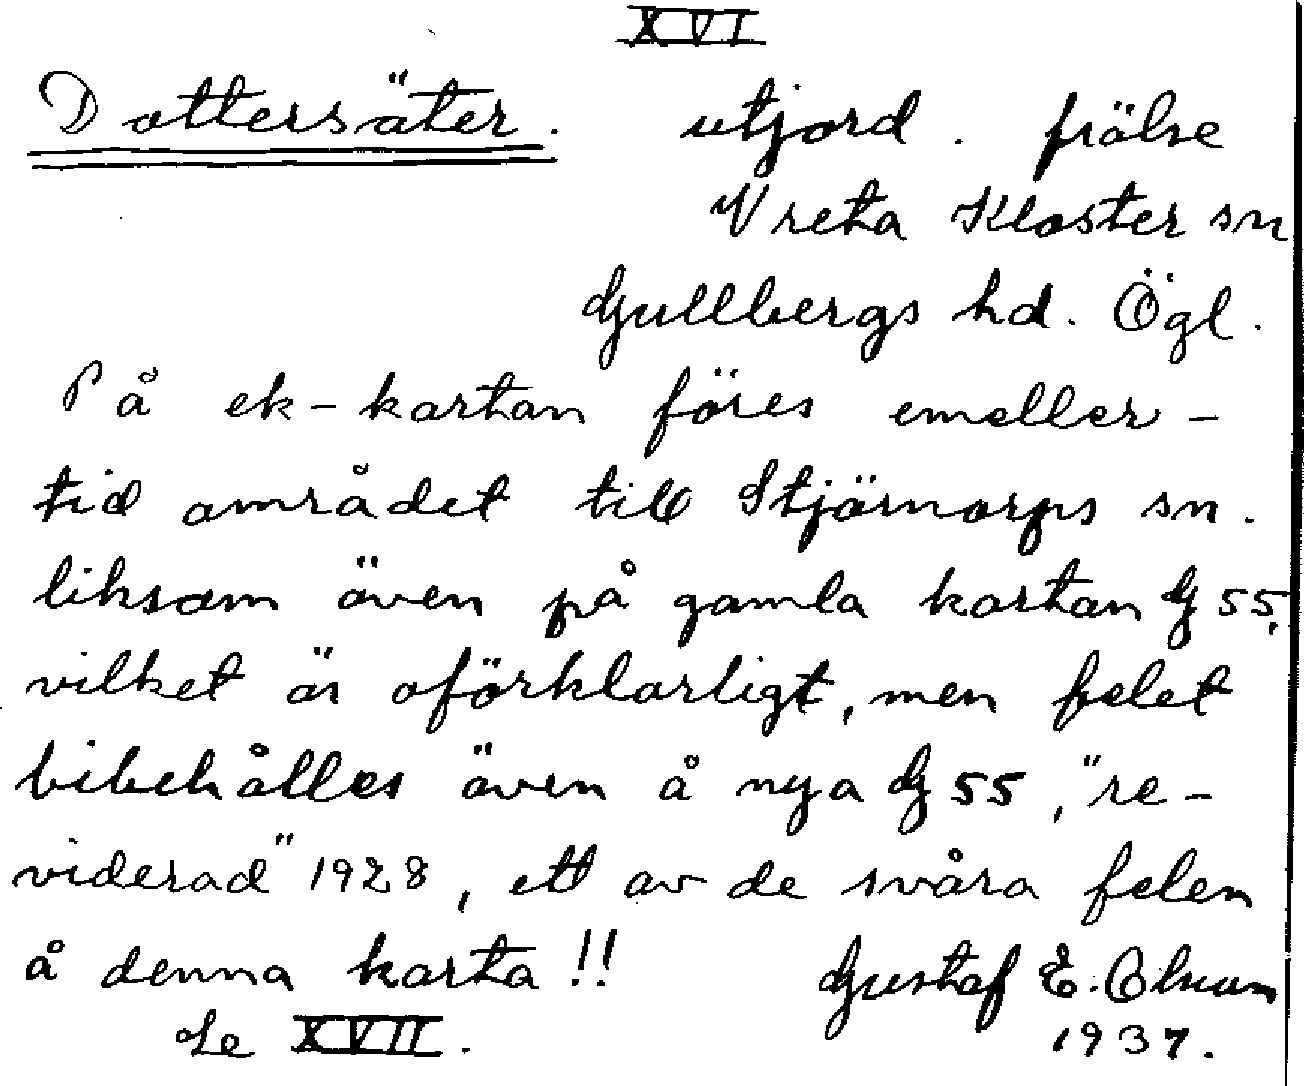 XVI
Dottersäter. utjord. frälse
Vreta Kloster sn
Gullbergs hd. Ögl.
På ek-kartan föres emeller-
tid området till Stjärnorps sn.
liksom även på gamla kartan G 55,
vilket är oförklarligt, men felet
bibehålles även å nya G 55, "re-
viderad" 1928, ett av de svåra felen
å denna karta!! Gustaf E. Olsson
Se XVII. 1937.